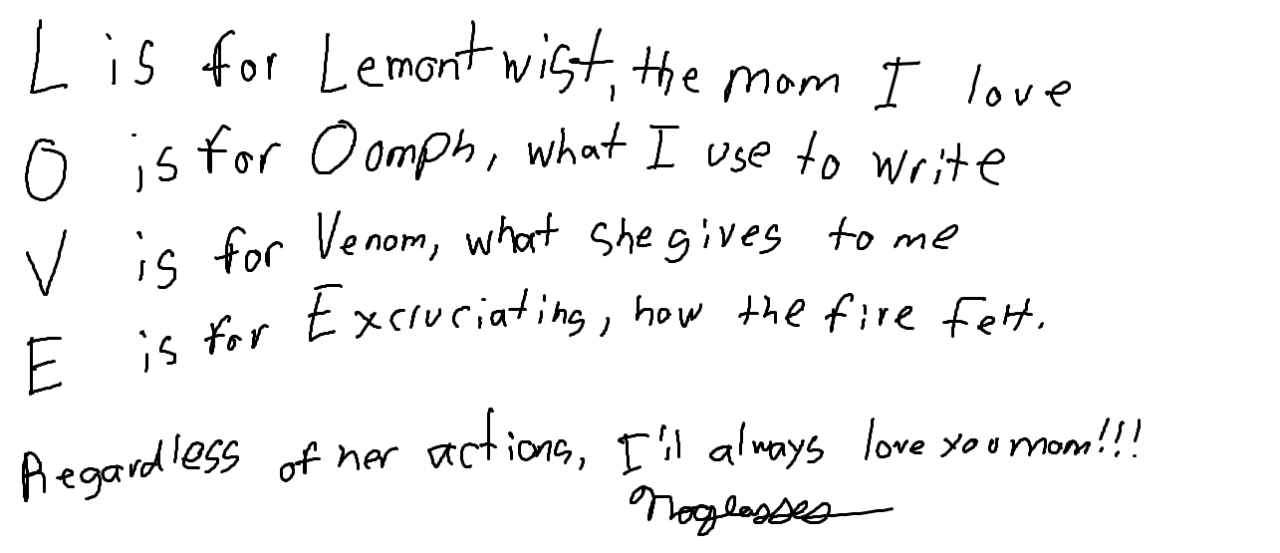 L is for Lemontwist, the mom I love
O is for Oomph, what I use to write
V is for Venom, what she gives to me
E is for Excruciating, how the fire felt.
Regardless of her actions, I'll always love you mom!!!
Noglasses